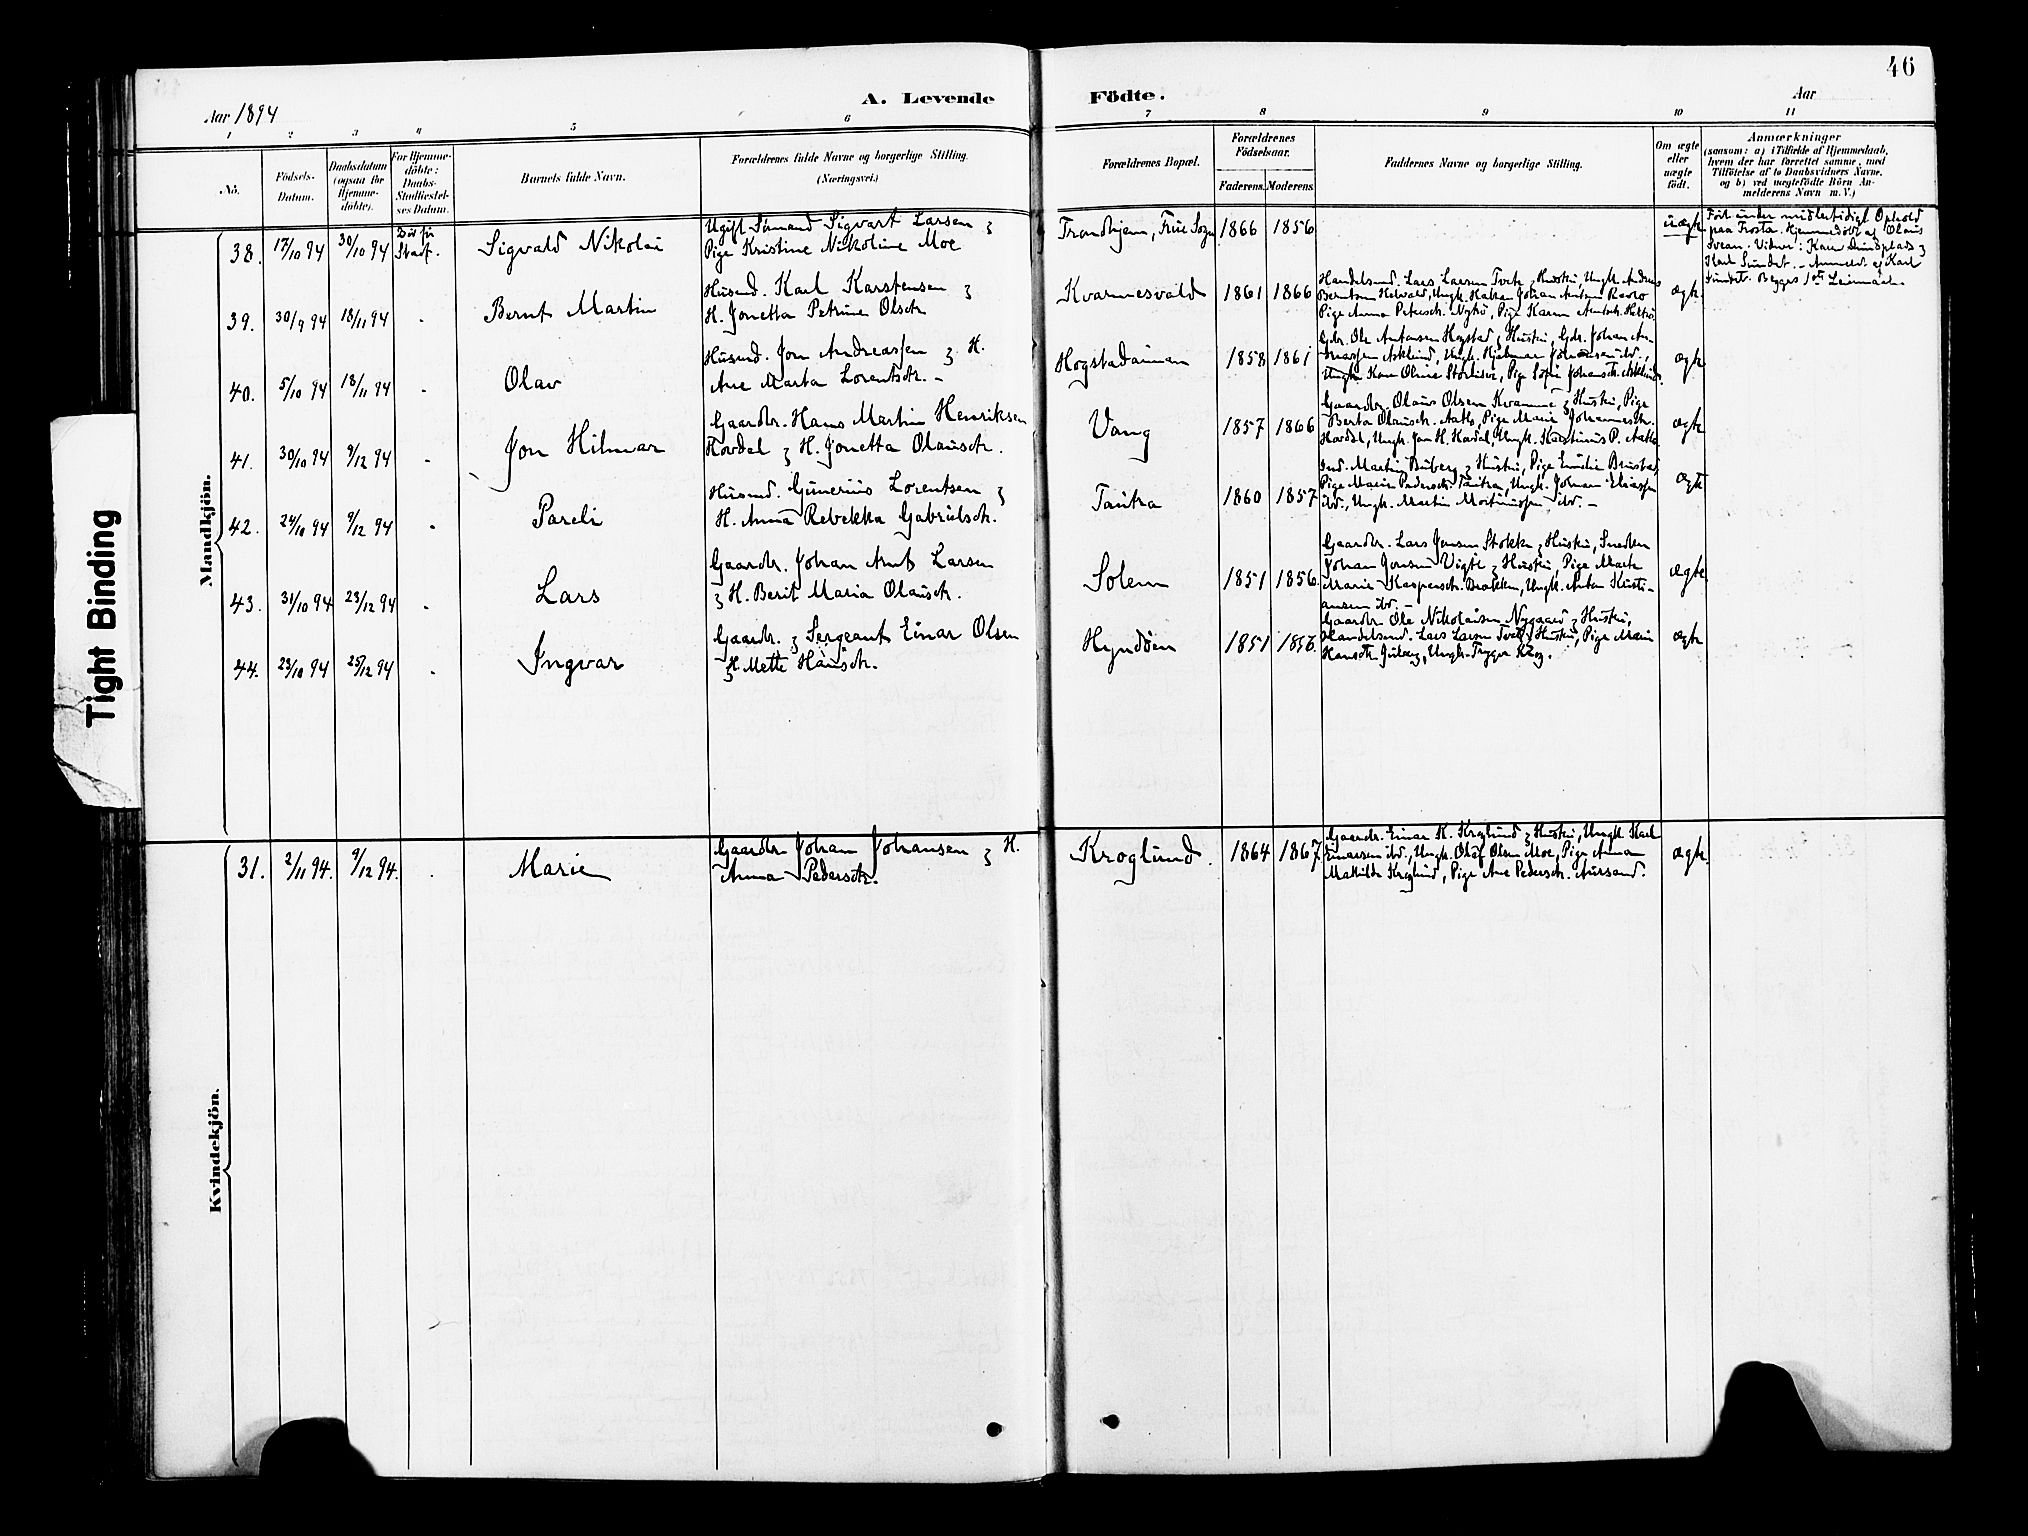 46
A. Levende Födte.
Aar 1894
Aar
1 2 3 4 5 6 7 8 9 10 11
No.
Födsels-Datum.
Daabsdatum (ogsaa for Hjemme-döbte).
For Hjemme-döbte: Daabs-Stadfæstel-ses Datum.
Barnets fulde Navn.
Forældrenes fulde Navne og borgerlige Stilling. (Næringsvei.)
Forældrenes Bopæl.
Forældrenes Födselsaar.
Faderens. Moderens.
Faddernes Navne og borgerlige Stilling.
Om ægte eller uægte födt.
Anmærkninger
(saasom: a) i Tilfælde af Hjemmedaab,
hvem der har forrettet samme, med
Tilföielse af to Daabsvidners Navne.
og b) ved uægtefödte Börn An-
melderens Navn m.V.)
Mandkjön.
38. 17/10 94 30/10 94 Död før Stadf. Sigvald Nikolai
Ugift Sømand Sigvart Larsen &
Pige Kristine Nikoline Moe
Trondhjem, Frue Sogn 1866 1856 uægte
Født under midlertidigt Ophold
paa Frosta. Hjemmedøbt af Olaus
Svean. Vidner: Karen Sundplads &
Karl Sundet. - Anmeldt af Karl
Sundet. Begges 1ste Leiermaal.
39. 30/9 94 18/11 94 Bernt Martin
Husmd. Karl Karstensen &
H. Jonetta Petrine Olsdtr.
Kvammesvald 1861 1866
Handelsmd. Lars Larsen Tvete & Hustru, Ungk. Andreas
Berntsen Helvald, Ungk. Johan Antsen
Pige Anna Petersdtr. Nytrø, Pige Karen Arntsdtr.
ægte.
40. 5/10 94 18/11 94 Olav
Husmd. Jon Andreassen & H.
Ane Marta Lorentsdtr. -
Hogstadaunan 1858 1861
Gdr. Ole Antonsen Hogstad & Hustru, Gdr. Johan An-
dreassen Asklund, Ungk. Hjalmar Johansen ibd.,
Karen Oline Størliser, Pige Sofie Johansdtr. Asklund.
ægte
41. 30/10 94 9/12 94 Jon Hilmar
Gaardbr. Hans Martin Henriksen
Hovdal & H. Jonetta Olausdtr.
Vang 1857 1866
Gaardbr. Olaus Olsen Kvamme & Hustru, Pige
Berta Olausdtr. Aatlo, Pige Marie Johannesdtr.
Hovdal, Ungk. Jon H. Hovdal, Ungk. Karstinus P. Aatlo
ægte
42. 24/10 94 9/12 94 Pareli
Husmd. Gunerius Lorentsen &
H. Anna Rebekka Gabrielsdtr.
Tautra 1860 1857
Ind. Martin Buberg & Hustru, Pige Emilie Brustad
Pige Marie Pedersdtr. Tautra, Ungk. Johan Eliassen
ibd., Ungk. Martin Mortinussen ibd. -
ægte
43. 31/10 94 23/12 94 Lars
Gaardbr. Johan Arnt Larsen
& H. Berit Maria Olausdtr.
Solem 1851 1856
Gaardbr. Lars Jensen Stokke & Hustru, Snedker
Johan Jonsen Vigte & Hustru, Pige Marte
Marie Kaspersdtr. Brækken, Ungk. Anton Kristi-
ansen ibd. -
ægte
44. 23/10 94 25/12 94 Ingvar
Gaardbr. & Sergeant Einar Olsen
& H. Mette Hansdtr.
Hyndøen 1851 1856
Gaardbr. Ole Nikolaisen Nygaard & Hustru,
Handelsmd. Lars Larsen Tvete & Hustru, Pige Marie
Hansdtr. Juberg, Ungk. Trygve Krog.
ægte
Kvindekjön.
31. 2/11 94. 9/12 94. Marie
Gaardbr. Johan Johansen & H.
Anna Pedersdtr.
Kroglund. 1864 1867
Gaardbr. Einar H. Kroglund & Hustru, Ungk. Karl
Einarsen ibd., Ungk. Olaf Olsen Moe, Pige Anna
Mathilde Kroglund, Pige Ane Pedersdtr. Aursand.
ægte.
Tight Binding